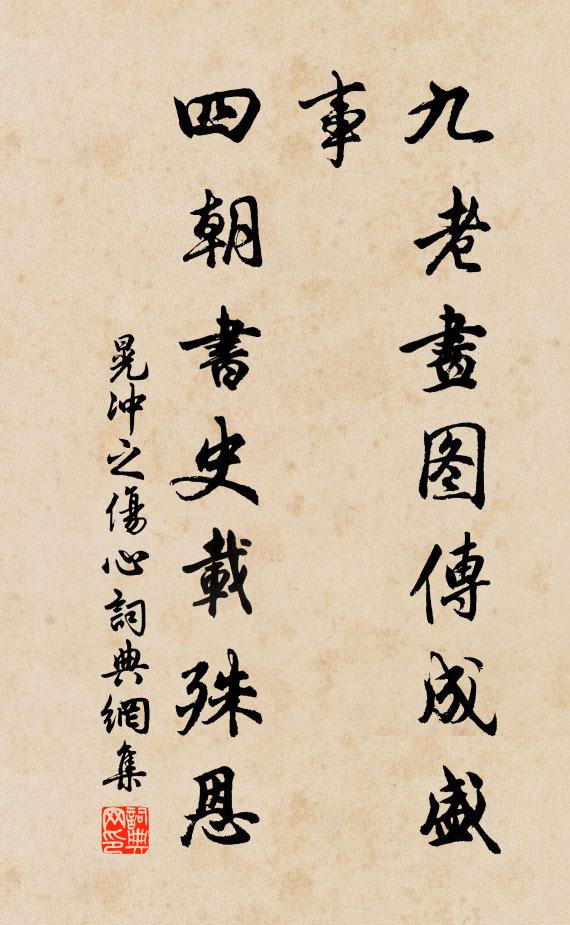 九老畫图傳成盛
事
四朝書史載殊恩
晁冲之傷心詞典網集
詞典网印